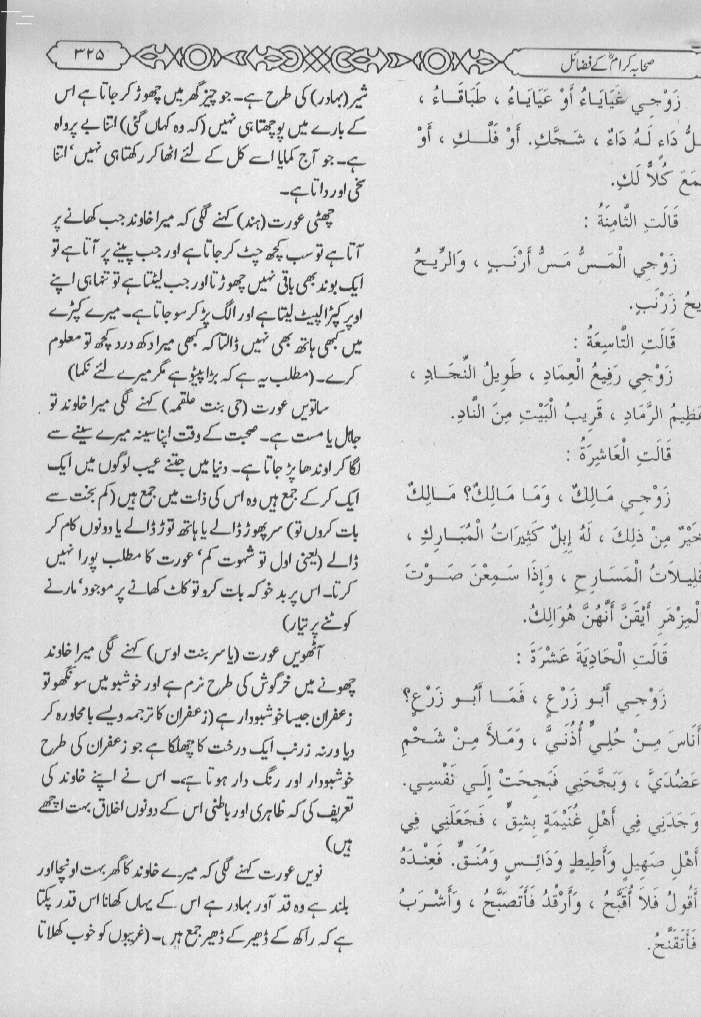 صحابہ کرامؓ کے فضائل
۳۲۵
زَوْجِي غَيَايَاءُ أَوْ عَيَايَاءُ ، طَبَاقَاءُ ،
دَاءٍ لَهُ دَاءٌ ، شَجَّكِ. أَوْ فَلَّكِ ، أَوْ
كُلاًّ لَكِ.
قَالَتِ الثَّامِنَةُ :
زَوْجِي الْمَسُّ مَسُّ أَرْنَبٍ ، وَالرِّيحُ
زَرْنَبٍ.
قَالَتِ التَّاسِعَةُ :
زَوْجِي رَفِيعُ الْعِمَادِ ، طَوِيلُ النِّجَادِ ،
عَظِيمُ الرَّمَادِ ، قَرِيبُ الْبَيْتِ مِنَ النَّادِ.
قَالَتِ الْعَاشِرَةُ :
زَوْجِي مَالِكٌ ، وَمَا مَالِكٌ؟ مَالِكٌ
خَيْرٌ مِنْ ذٰلِكَ ، لَهُ إِبِلٌ كَثِيرَاتُ الْمُبَارِكِ ،
قَلِيلَاتُ الْمَسَارِحِ ، وَإِذَا سَمِعْنَ صَوْتَ
الْمِزْهَرِ أَيْقَنَّ أَنَّهُنَّ هُوَالِكُ.
قَالَتِ الْحَادِيَةَ عَشْرَةَ :
زَوْجِي أَبُو زَرْعٍ ، فَمَا أَبُو زَرْعٍ؟
أَنَاسَ مِنْ حُلِيٍّ أُذُنَيَّ ، وَمَلَأَ مِنْ شَحْمٍ
عَضُدَيَّ ، وَبَجَّحَنِي فَبَجِحَتْ إِلَي نَفْسِي.
وَجَدَنِي فِي أَهْلِ غُنَيْمَةٍ بِشِقٍّ ، فَجَعَلَنِي فِي
أَهْلِ صَهِيلٍ وَأَطِيطٍ وَدَائِسٍ وَمُنَقٍّ. فَعِنْدَهُ
أَقُولُ فَلاَ أُقَبَّحُ ، وَأَرْقُدُ فَأَتَصَبَّحُ ، وَأَشْرَبُ
فَأَتَقَنَّحُ.
شیر (بہادر) کی طرح ہے۔ جو چیز گھر میں چھوڑ کر جاتا ہے اس
کے بارے میں پوچھتا ہی نہیں (کہ وہ کہاں گئی) اتنا بے پرواہ
ہے۔ جو آج کمایا اسے کل کے لئے اٹھا کر رکھتا ہی نہیں‘ اتنا
سخی اور داتا ہے۔
چھٹی عورت (ہند) کہنے لگی کہ میرا خاوند جب کھانے پر
آتا ہے تو سب کچھ چٹ کر جاتا ہے اور جب پینے پر آتا ہے تو
ایک بوند بھی باقی نہیں چھوڑتا اور جب لیٹتا ہے تو تنہا ہی اپنے
اوپر کپڑا لپیٹ لیتا ہے اور الگ پڑ کر سو جاتا ہے۔ میرے کپڑے
میں کبھی ہاتھ بھی نہیں ڈالتا کہ کبھی میرا دکھ درد کچھ تو معلوم
کرے۔ (مطلب یہ ہے کہ بڑا پیٹو ہے مگر میرے لئے نکما)
ساتویں عورت (حی بنت علقمہ) کہنے لگی میرا خاوند تو
جاہل یا مست ہے۔ صحبت کے وقت اپنا سینہ میرے سینے سے
لگا کر اوندھا پڑ جاتا ہے۔ دنیا میں جتنے عیب لوگوں میں ایک
ایک کر کے جمع ہیں وہ اس کی ذات میں جمع ہیں (کم بخت سے
بات کروں تو) سر پھوڑ ڈالے یا ہاتھ توڑ ڈالے یا دونوں کام کر
ڈالے (یعنی اول تو شہوت کم‘ عورت کا مطلب پورا نہیں
کرتا۔ اس پر بد خو کہ بات کرو تو کاٹ کھانے پر موجود‘ مارنے
کوٹنے پر تیار)
آٹھویں عورت (یاسر بنت اوس) کہنے لگی میرا خاوند
چھونے میں خرگوش کی طرح نرم ہے اور خوشبو میں سونگھو تو
زعفران جیسا خوشبودار ہے (زعفران کا ترجمہ ویسے بامحاورہ کر
دیا ورنہ زرنب ایک درخت کا چھلکا ہے جو زعفران کی طرح
خوشبودار اور رنگ دار ہوتا ہے۔ اس نے اپنے خاوند کی
تعریف کی کہ ظاہری اور باطنی اس کے دونوں اخلاق بہت اچھے
ہیں)
نویں عورت کہنے لگی کہ میرے خاوند کا گھر بہت اونچا اور
بلند ہے وہ قد آور بہادر ہے اس کے یہاں کھانا اس قدر پکتا
ہے کہ راکھ کے ڈھیر کے ڈھیر جمع ہیں۔ (غریبوں کو خوب کھلاتا